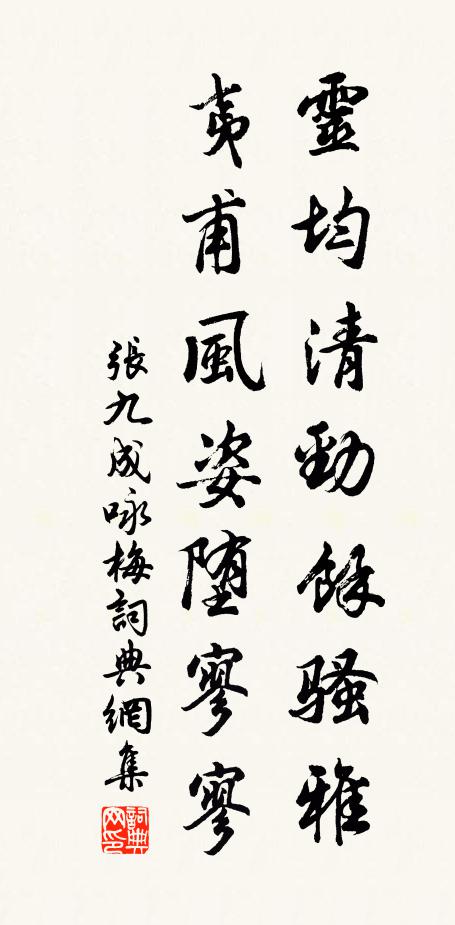 靈均清勁餘騷雅
夷甫風姿堕寥寥
張九成咏梅詞典網集
詞典網印